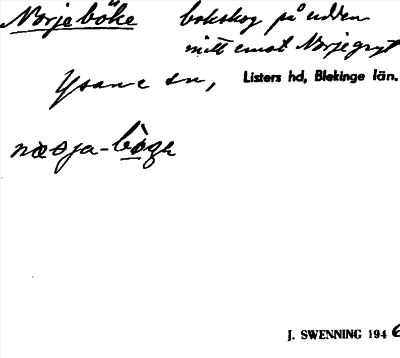 Norjeböke bokskog på udden
mitt emot Norjegryt
Ysane sn, Listers hd, Blekinge län.
J. SWENNING 1946